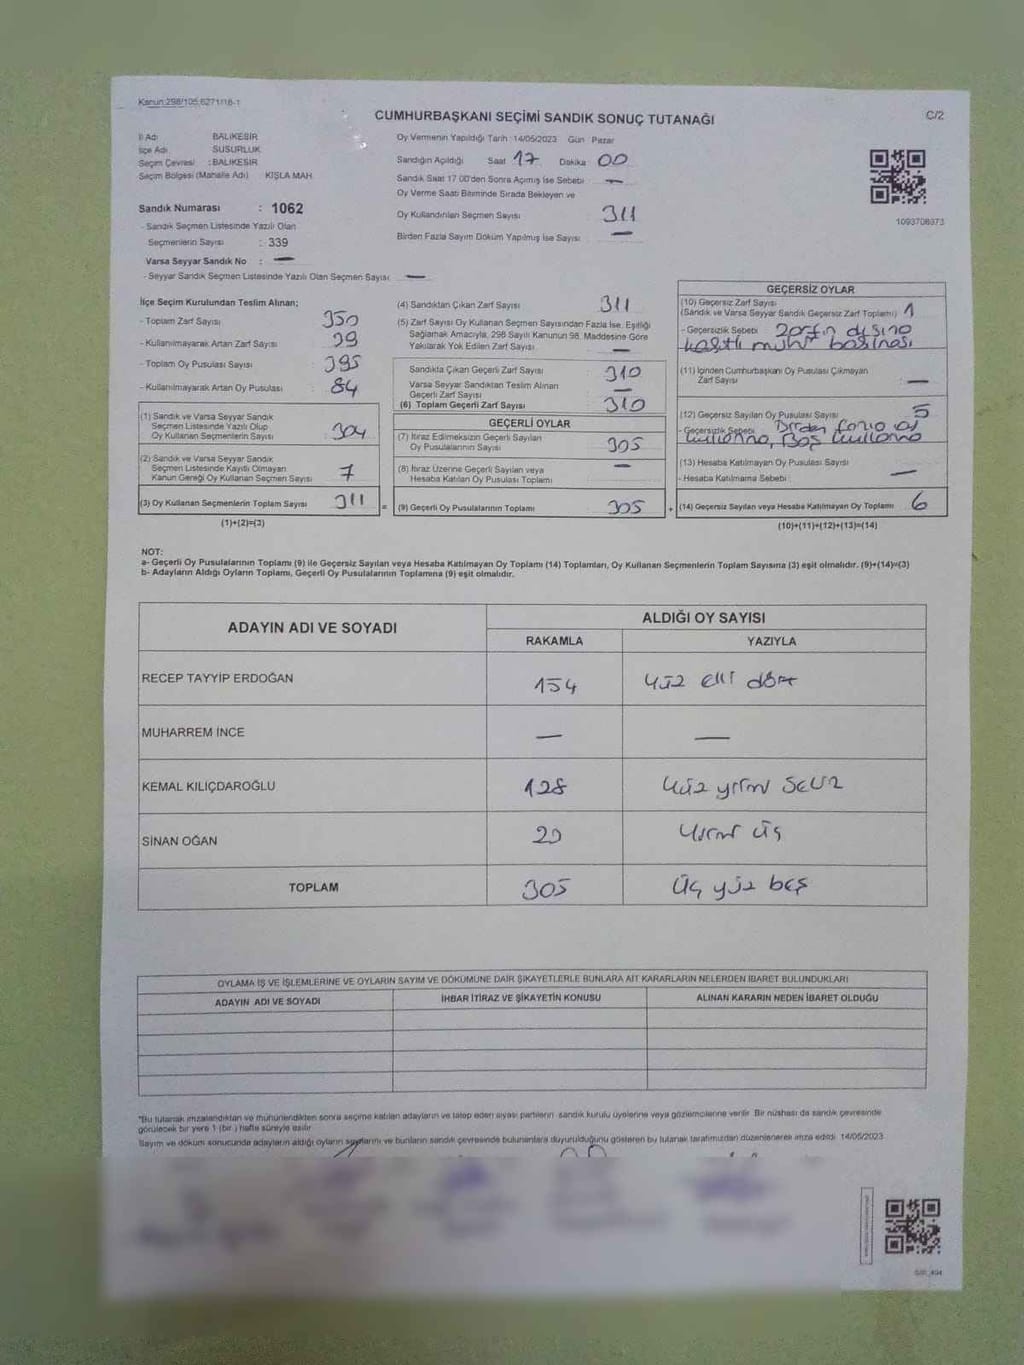 Kanun:298/105,6271/18-1
C/2
CUMHURBAŞKANI SEÇİMİ SANDIK SONUÇ TUTANAĞI
İl Adı BALIKESİR
İlçe Adı SUSURLUK
Seçim Çevresi : BALIKESİR
Seçim Bölgesi (Mahalle Adı) KIŞLA MAH.
Sandık Numarası : 1062
- Sandık Seçmen Listesinde Yazılı Olan
Seçmenlerin Sayısı : 339
Varsa Seyyar Sandık No : —
- Seyyar Sandık Seçmen Listesinde Yazılı Olan Seçmen Sayısı —
Oy Vermenin Yapıldığı Tarih :14/05/2023 Gün Pazar
Sandığın Açıldığı Saat 17 Dakika 00
Sandık Saat 17.00'den Sonra Açımış İse Sebebi —
Oy Verme Saati Bitiminde Sırada Bekleyen ve
Oy Kullandırılan Seçmen Sayısı 311
Birden Fazla Sayım Döküm Yapılmış İse Sayısı —
1093708973
İlçe Seçim Kurulundan Teslim Alınan;
- Toplam Zarf Sayısı 350
- Kullanılmayarak Artan Zarf Sayısı 39
- Toplam Oy Pusulası Sayısı 395
- Kullanılmayarak Artan Oy Pusulası 84
(1) Sandık ve Varsa Seyyar Sandık
Seçmen Listesinde Yazılı Olup
Oy Kullanan Seçmenlerin Sayısı 304
(2) Sandık ve Varsa Seyyar Sandık
Seçmen Listesinde Kayıtlı Olmayan
Kanun Gereği Oy Kullanan Seçmen Sayısı 7
(3) Oy Kullanan Seçmenlerin Toplam Sayısı 311
(1)+(2)=(3)
(4) Sandıktan Çıkan Zarf Sayısı 311
(5) Zarf Sayısı Oy Kullanan Seçmen Sayısından Fazla İse, Eşitliği
Sağlamak Amacıyla, 298 Sayılı Kanunun 98. Maddesine Göre
Yakılarak Yok Edilen Zarf Sayısı —
Sandıkta Çıkan Geçerli Zarf Sayısı 310
Varsa Seyyar Sandıktan Teslim Alınan
Geçerli Zarf Sayısı —
(6) Toplam Geçerli Zarf Sayısı 310
GEÇERLİ OYLAR
(7) İtiraz Edilmeksizin Geçerli Sayılan
Oy Pusulalarının Sayısı 305
(8) İtiraz Üzerine Geçerli Sayılan veya
Hesaba Katılan Oy Pusulası Toplamı —
= (9) Geçerli Oy Pusulalarının Toplamı 305
GEÇERSİZ OYLAR
(10) Geçersiz Zarf Sayısı
(Sandık ve Varsa Seyyar Sandık Geçersiz Zarf Toplamı) 1
- Geçersizlik Sebebi Zarfın dışına
kasıtlı mühür basması
(11) İçinden Cumhurbaşkanı Oy Pusulası Çıkmayan
Zarf Sayısı —
(12) Geçersiz Sayılan Oy Pusulası Sayısı 5
- Geçersizlik Sebebi Birden fazla oy
kullanma, Boş kullanma
(13) Hesaba Katılmayan Oy Pusulası Sayısı
- Hesaba Katılmama Sebebi : —
+ (14) Geçersiz Sayılan veya Hesaba Katılmayan Oy Toplamı 6
(10)+(11)+(12)+(13)=(14)
NOT:
a- Geçerli Oy Pusulalarının Toplamı (9) ile Geçersiz Sayılan veya Hesaba Katılmayan Oy Toplamı (14) Toplamları, Oy Kullanan Seçmenlerin Toplam Sayısına (3) eşit olmalıdır. (9)+(14)=(3)
b- Adayların Aldığı Oyların Toplamı, Geçerli Oy Pusulalarının Toplamına (9) eşit olmalıdır.
ADAYIN ADI VE SOYADI
ALDIĞI OY SAYISI
RAKAMLA YAZIYLA
RECEP TAYYİP ERDOĞAN 154 yüz elli dört
MUHARREM İNCE — —
KEMAL KILIÇDAROĞLU 128 yüz yirmi sekiz
SİNAN OĞAN 23 yirmi üç
TOPLAM 305 üç yüz beş
OYLAMA İŞ VE İŞLEMLERİNE VE OYLARIN SAYIM VE DÖKÜMÜNE DAİR ŞİKAYETLERLE BUNLARA AİT KARARLARIN NELERDEN İBARET BULUNDUKLARI
ADAYIN ADI VE SOYADI İHBAR İTİRAZ VE ŞİKAYETİN KONUSU ALINAN KARARIN NEDEN İBARET OLDUĞU
*Bu tutanak imzalandıktan ve mühürlendikten sonra seçime katılan adayların ve talep eden siyasi partilerin sandık kurulu üyelerine veya gözlemcilerine verilir. Bir nüshası da sandık çevresinde
görülecek bir yere 1 (bir ) hafta süreyle asılır.
Sayım ve döküm sonucunda adayların aldığı oyların sayılarını ve bunların sandık çevresinde bulunanlara duyurulduğunu gösteren bu tutanak tarafımızdan düzenlenerek imza edildi. 14/05/2023